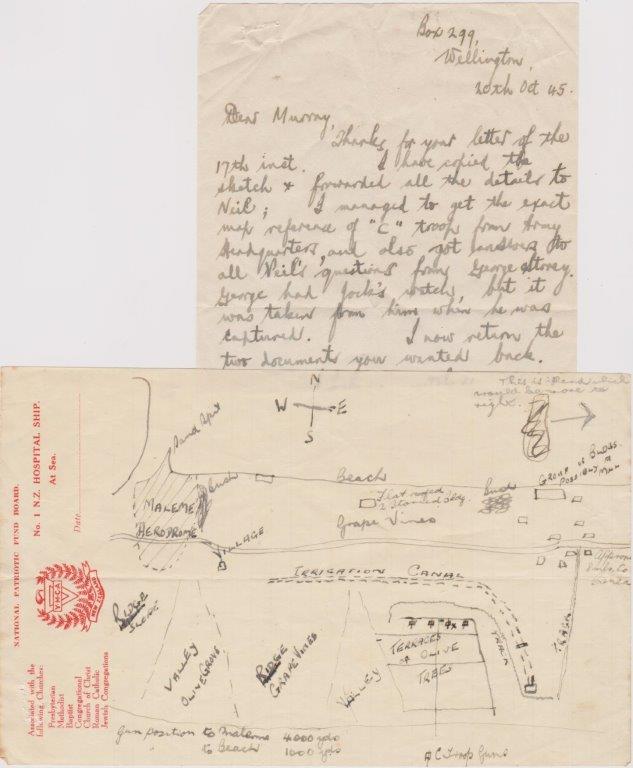 Box 299,
Wellington,
20th Oct 45.
Dear Murray,
Thanks for your letter of the
17th inst. I have copied the
sketch & forwarded all the details to
Neil; I managed to get the exact
map reference of "C" troop from Army
Headquarters, and also got answers to
all Neil's questions from George Storey.
George had Jock's watch, but it
was taken from him when he was
captured. I now return the
two documents you wanted back.
NATIONAL PATRIOTIC FUND BOARD.
No. 1 N.Z. HOSPITAL SHIP.
At Sea.
Date
Y.M.C.A.
Associated with the
following Churches:
Presbyterian
Methodist
Baptist
Congregational
Church of Christ
Roman Catholic
Jewish Congregations
N
W E
S
This is island which
would be more to
right.
Sand Spit
Beach
Bush
MALEME
AERODROME
Flat roofed
2 storied bldg.
Grape Vines
GROUP OF BLDGS.
VILLAGE
IRRIGATION CANAL
RIDGE
VALLEY
OLIVE GROVE
RIDGE
GRAPE VINES
VALLEY
TERRACES
OF OLIVE
TREES
TRACK
Gun position to Maleme 4000 yds
to Beach 1000 yds
C Troop Guns